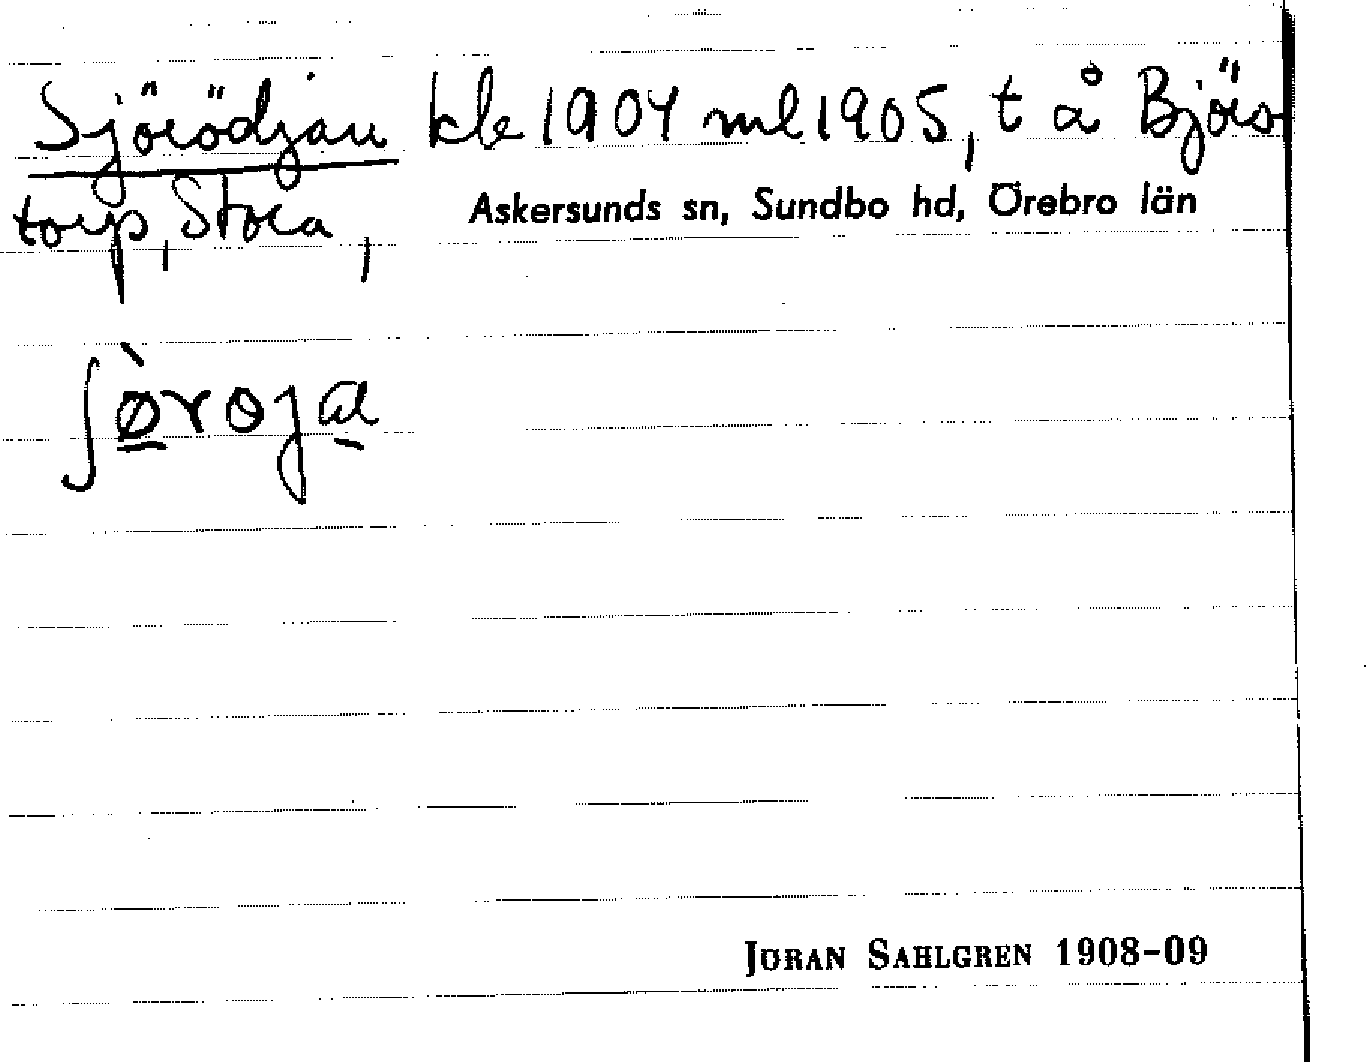 Sjörödjan kle 1904 ml 1905, t å Björs
torp, Stora, Askersunds sn, Sundbo hd, Örebro län
JÖRAN SAHLGREN 1908-09